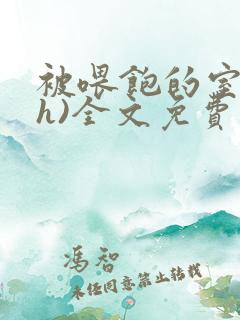 被喂饱的室
h)全文免费
冯智
未经同意禁止转载